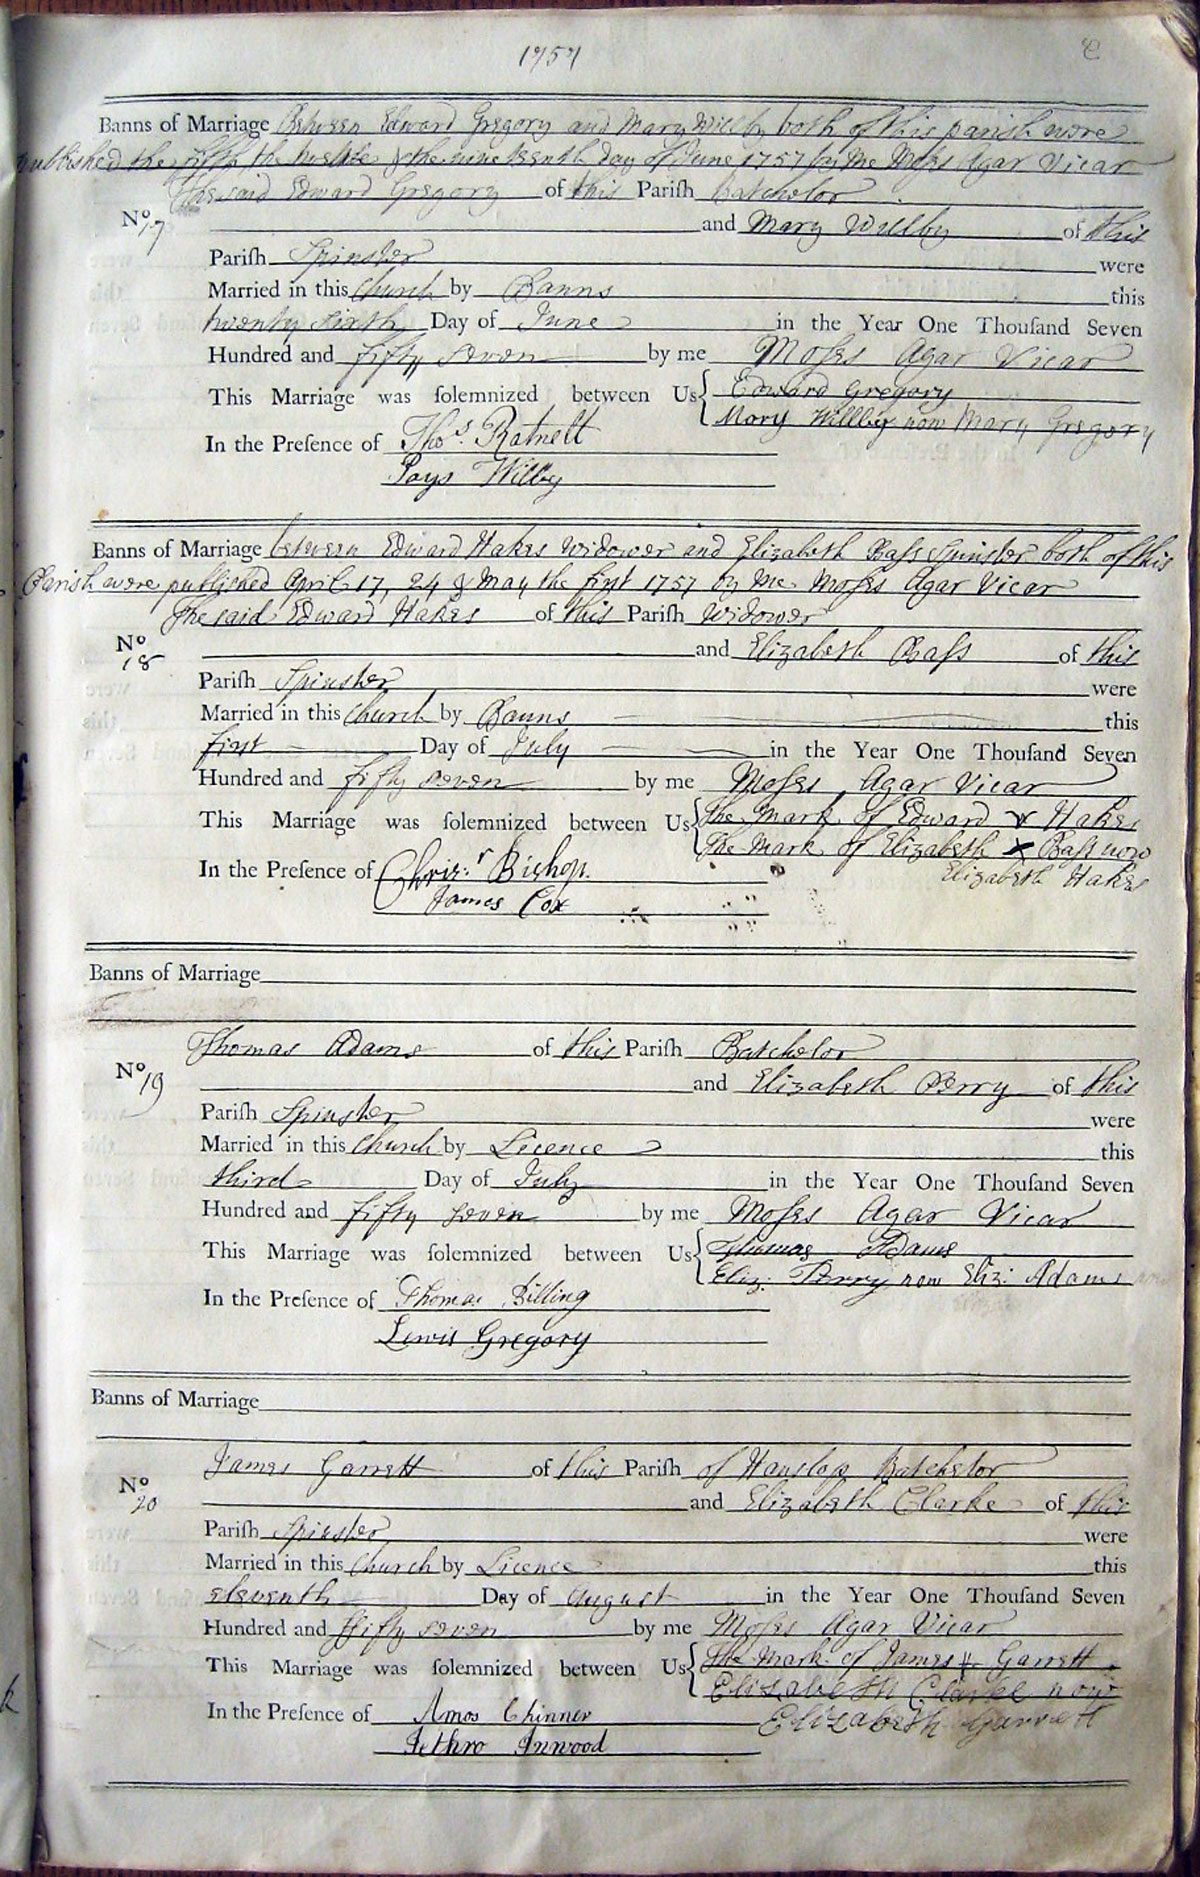 1757
Banns of Marriage Between Edward Gregory and Mary Willby both of this parish were
published the fifth the twelfe & the nineteenth day of June 1757 by me Moſes Agar Vicar
The said Edward Gregory of this Pariſh Batchelor
No 17 and Mary Willby of this
Pariſh Spinster were
Married in this Church by Banns this
twenty sixth Day of June in the Year One Thouſand Seven
Hundred and fifty seven by me Moſes Agar Vicar
This Marriage was ſolemnized between Us Edward Gregory
Mary Willby now Mary Gregory
In the Preſence of Thos. Ratnett
Pays Wilby
Banns of Marriage between Edward Hakes Widower and Elizabeth Baſs Spinster both of this
Parish were published April 17, 24 & May the first 1757 by me Moſes Agar Vicar
The said Edward Hakes of this Pariſh Widower
No 18 and Elizabeth Baſs of this
Pariſh Spinster were
Married in this Church by Banns this
first Day of July in the Year One Thouſand Seven
Hundred and fifty seven by me Moſes Agar Vicar
This Marriage was ſolemnized between Us the Mark of Edward x Hakes
the Mark of Elizabeth x Baſs now
Elizabeth Hakes
In the Preſence of Chrisr: Bishop.
James Cox
Banns of Marriage
Thomas Adams of this Pariſh Batchelor
No 19 and Elizabeth Perry of this
Pariſh Spinster were
Married in this Church by Licence this
third Day of July in the Year One Thouſand Seven
Hundred and fifty seven by me Moſes Agar Vicar
This Marriage was ſolemnized between Us Thomas Adams
Eliz: Perry now Eliz: Adams
In the Preſence of Thomas Billing
Lewis Gregory
Banns of Marriage
James Garrett of this Pariſh of Hanslop Batchelor
No 20 and Elizabeth Clarke of this
Pariſh Spinster were
Married in this Church by Licence this
eleventh Day of August in the Year One Thouſand Seven
Hundred and fifty seven by me Moſes Agar Vicar
This Marriage was ſolemnized between Us the Mark of James + Garrett
Elizabeth Clarke now
Elizabeth Garrett
In the Preſence of Amos Chinner
Jethro Inwood